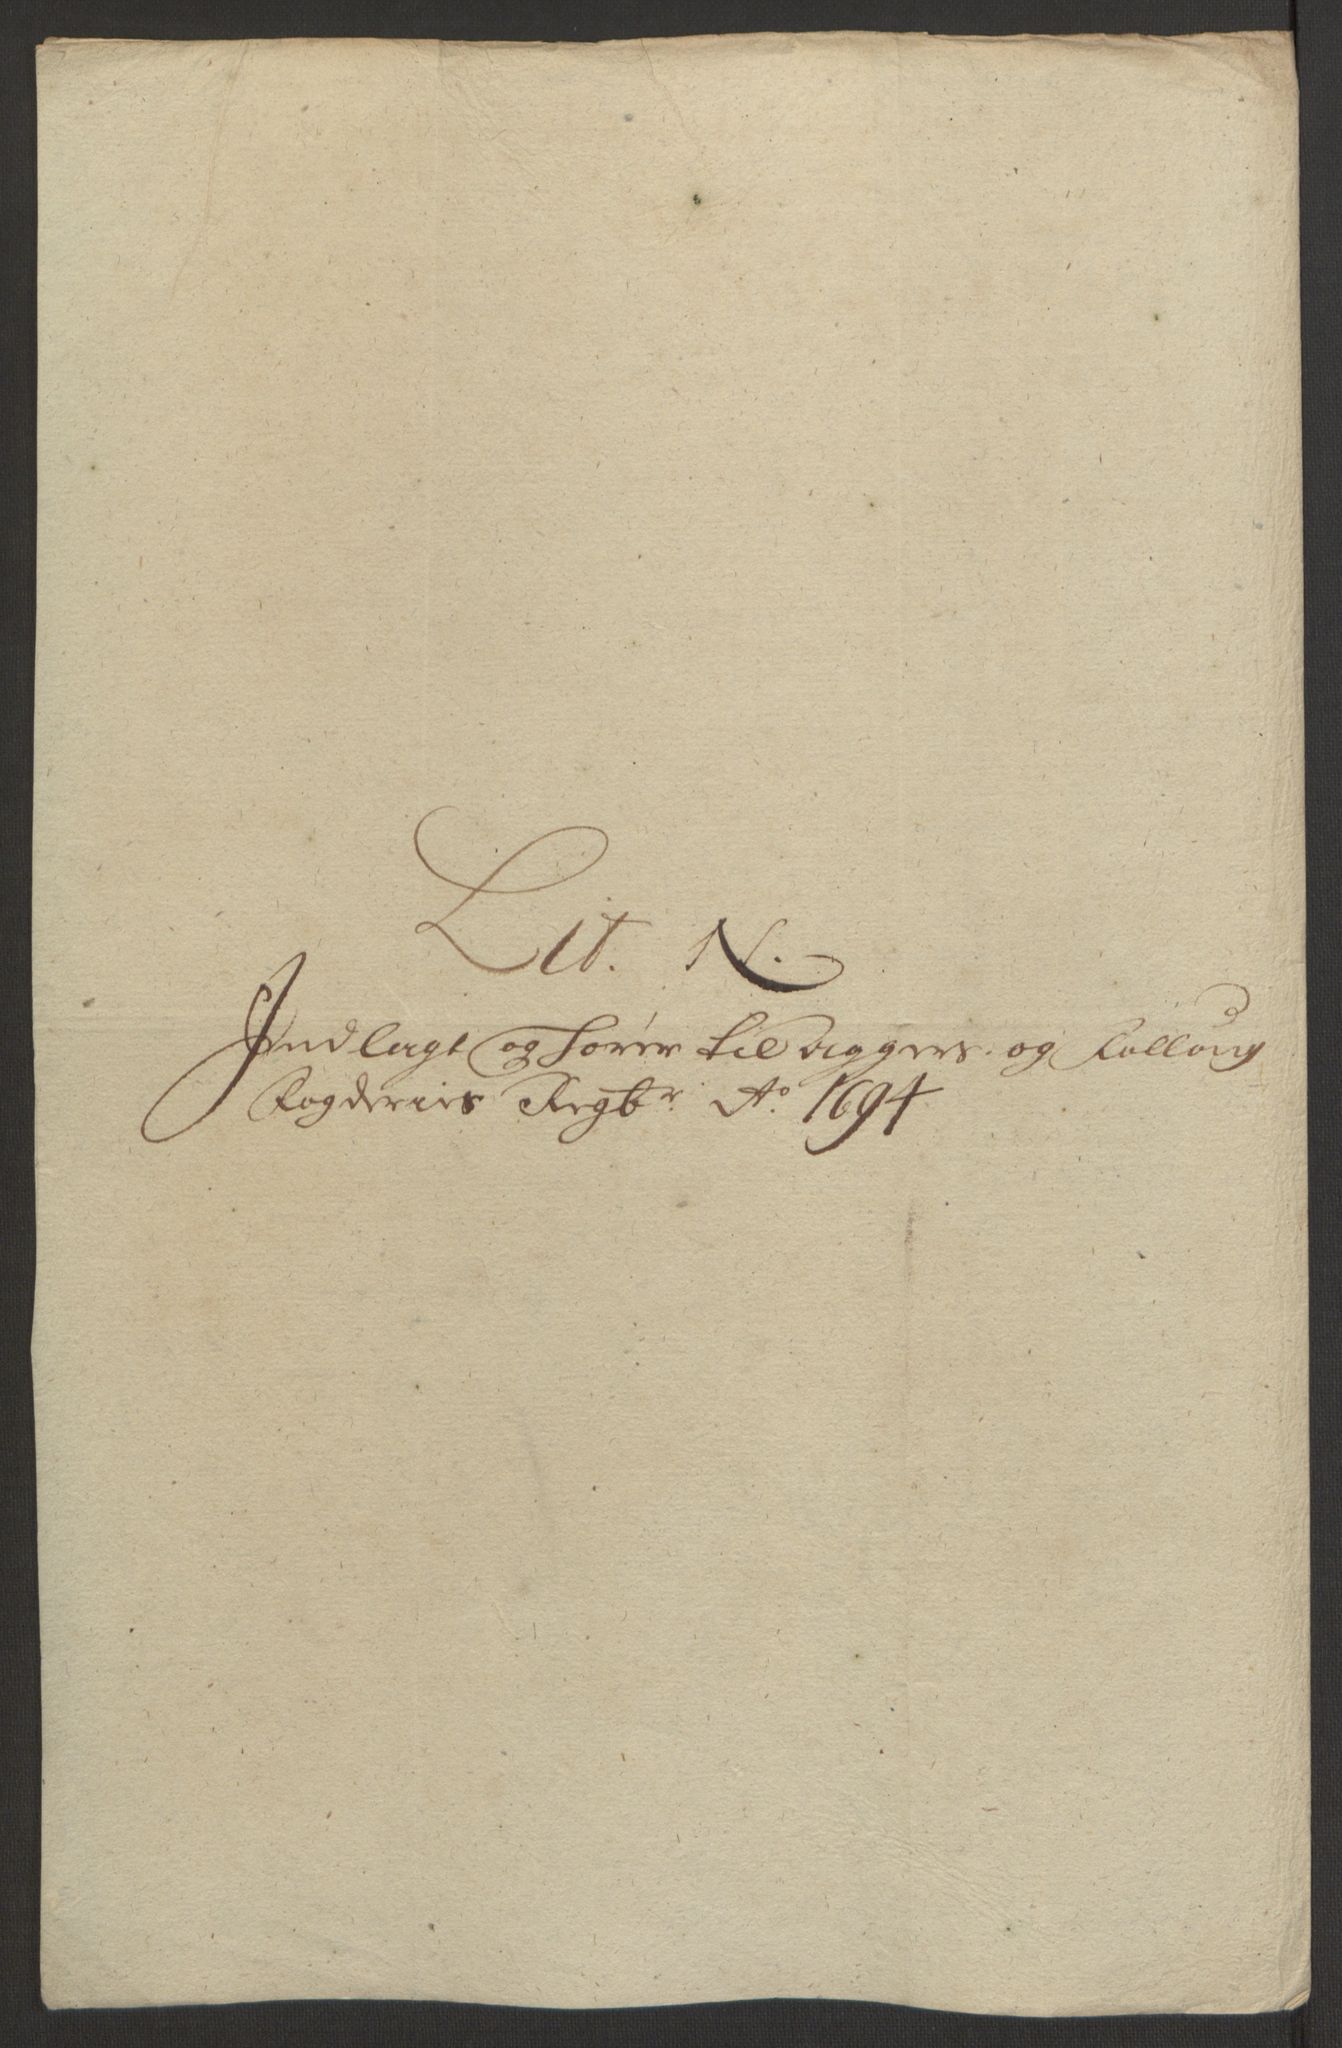 Lit. N.
Indlagt og hører til Aggers. og Folloug
Fogderies Regb.r A.o 1694